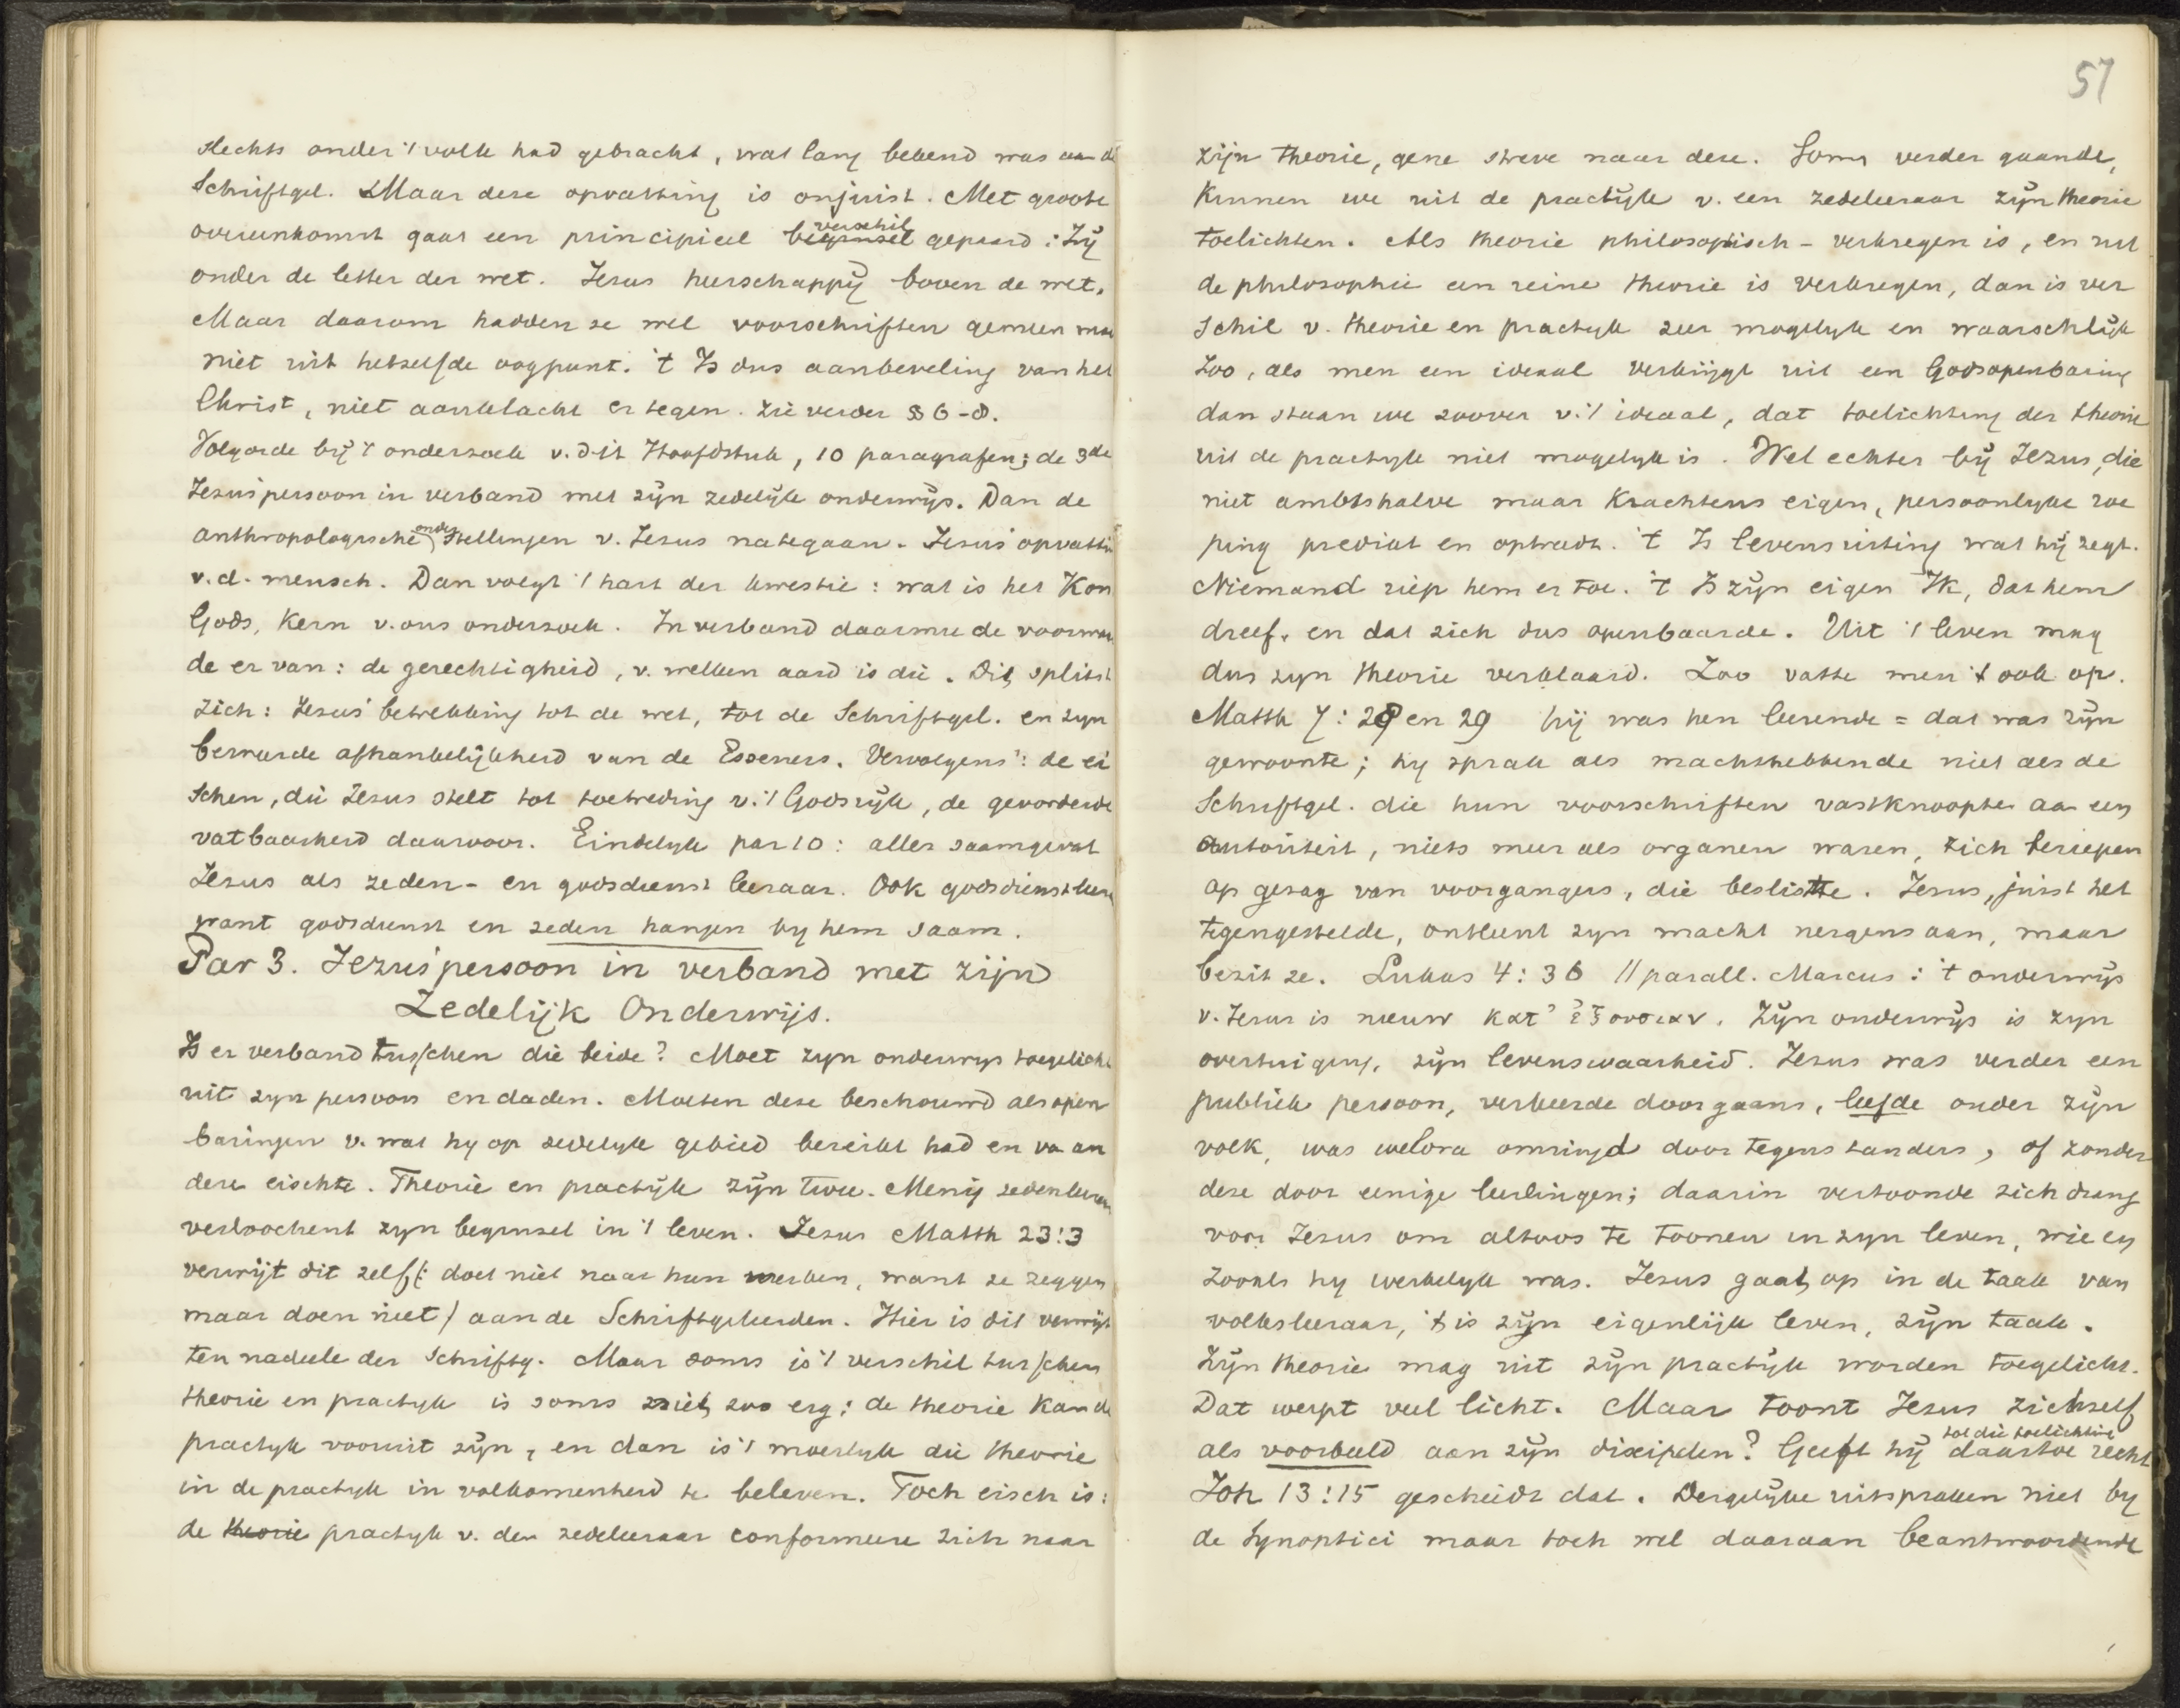 slechts onder 't volk had gebracht, wat lang bekend was aan de
Schriftgel. Maar deze opvatting is onjuist. Met groote
overeenkomst gaat een principieel verschil gepaard: Zij
onder de letter der wet. Jezus heerschappij boven de wet.
Maar daarom hadden ze wel voorschriften gemeen maar
niet uit hetzelfde oogpunt. 't Is dus aanbeveling van het
Christ, niet aanklacht er tegen. Zie verder § 6-8.
Volgorde bij 't onderzoek v. dit Hoofdstuk, 10 paragrafen; de 3de
Jezus' persoon in verband met zijn zedelijk onderwijs. Dan de
anthropologische onderstellingen v. Jezus nategaan. Jezus' opvatting
v. d. mensch. Dan volgt 't hart der kwestie: wat is het Kon
Gods, Kern v. ons onderzoek. In verband daarmee de voorwaar
de er van: de gerechtigheid, v. welken aard is die. Dit splitst
zich: Jezus' betrekking tot de wet, tot de Schriftgel. en zyn
beweerde afhankelijkheid van de Esseners. Vervolgens: de ei
schen, die Jezus stelt tot toetreding v. 't Godsrijk, de gevorderde
vatbaarheid daarvoor. Eindelyk par 10: alles saamgevat
Jezus als zeden- en godsdienst leeraar. Ook godsdienstleer
want godsdienst en zeden hangen by hem saam.
Par 3. Jezus' persoon in verband met zijn
Zedelijk Onderwijs.
Is er verband tusschen die beide? Moet zyn onderwys toegelicht
uit zyn persoon en daden. Moeten deze beschouwd als open
baringen v. wat hy op zedelyk gebied bereikt had en van an
dere eischte. Theorie en practijk zijn twee. Menig zedenleeraar
verloochent zyn beginsel in 't leven. Jezus Matth 23:3
verwijt dit zelf (: doet niet naar hun werken, want ze zeggen
maar doen niet) aan de Schriftgeleerden. Hier is dit verwijt
ten nadeele der Schriftg. Maar soms is 't verschil tusschen
theorie en practyk is soms niet zoo erg: de theorie Kan de
practyk vooruit zijn, en dan is 't moeilyk die theorie
in de practyk in volkomenheid te beleven. Toch eisch is:
de theorie practyk v. den zedeleeraar conformeere zich naar
57
zijn theorie, gene streve naar deze. Soms verder gaande,
Kunnen we uit de practijk v. een zedeleeraar zijn theorie
toelichten. Als theorie philosophisch - verkregen is, en uit
de philosophie een reine theorie is verkregen, dan is ver
schil v. theorie en practyk zeer mogelyk en waarschlijk
Zoo, als men een ideaal verkrijgt uit een Godsopenbaring
dan staan we zoover v. 't ideaal, dat toelichting der theorie
uit de practyk niet mogelyk is. Wel echter bij Jezus, die
niet ambtshalve maar Krachtens eigen, persoonlyke roe
ping predikt en optreedt. 't Is levensuiting wat hij zegt.
Niemand riep hem er toe. 't Is zijn eigen Ik, dat hem
dreef, en dat zich dus openbaarde. Uit 't leven mag
dus zyn theorie verklaard. Zoo vatte men 't ook op.
Matth 7: 28 en 29 hij was hen leerende = dat was zijn
gewoonte; hy sprak als machthebbende niet als de
Schriftgel. die hun voorschriften vastknoopten aan een
autoriteit, niets meer als organen waren, zich beriepen
op gezag van voorgangers, die besliste. Jezus, juist het
tegengestelde, ontleent zyn macht nergens aan, maar
bezit ze. Lukas 4: 36 // parall. Marcus: 't onderwijs
v. Jezus is nieuw κατ' ἐξουσιαν. Zijn onderwijs is zyn
overtuiging, zijn levenswaarheid. Jezus was verder een
publiek persoon, verkeerde doorgaans, leefde onder zijn
volk, was weldra omringd door tegenstanders, of zonder
deze door eenige leerlingen; daarin vertoonde zich drang
voor Jezus om altoos te toonen in zyn leven, wie en
zooals hy werkelyk was. Jezus gaat op in de taak van
volksleeraar, 't is zijn eigenlijk leven, zijn taak.
Zijn theorie mag uit zijn practijk worden toegelicht.
Dat werpt veel licht. Maar toont Jezus zichzelf
als voorbeeld aan zijn discipelen? Geeft hij daartoe recht
tot die toelichting
Joh 13:15 geschiedt dat. Dergelijke uitspraken niet by
de Synoptici maar toch wel daaraan beantwoordende